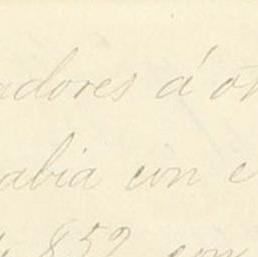 adores á ot
abia con e
852 con